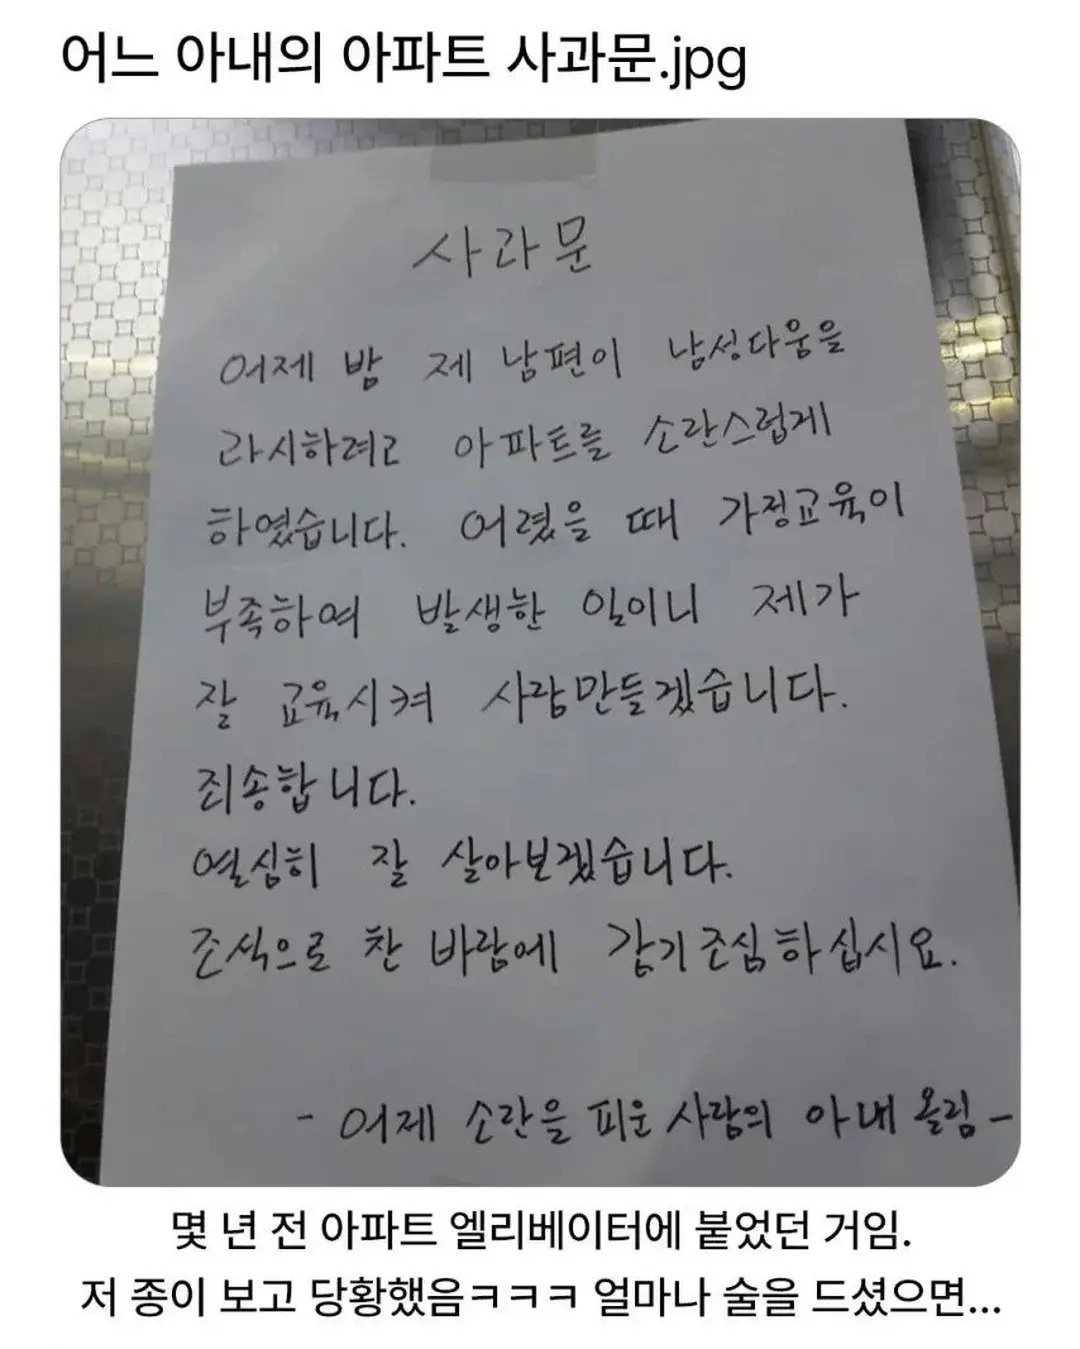 어느 아내의 아파트 사과문.jpg
사과문
어제 밤 제 남편이 남성다움을
과시하려고 아파트를 소란스럽게
하였습니다. 어렸을 때 가정교육이
부족하여 발생한 일이니 제가
잘 교육시켜 사람만들겠습니다.
죄송합니다.
열심히 잘 살아보겠습니다.
조식으로 찬 바람에 감기조심하십시요.
- 어제 소란을 피운 사람의 아내 올림 -
몇 년 전 아파트 엘리베이터에 붙었던 거임.
저 종이 보고 당황했음ㅋㅋㅋ 얼마나 술을 드셨으면...